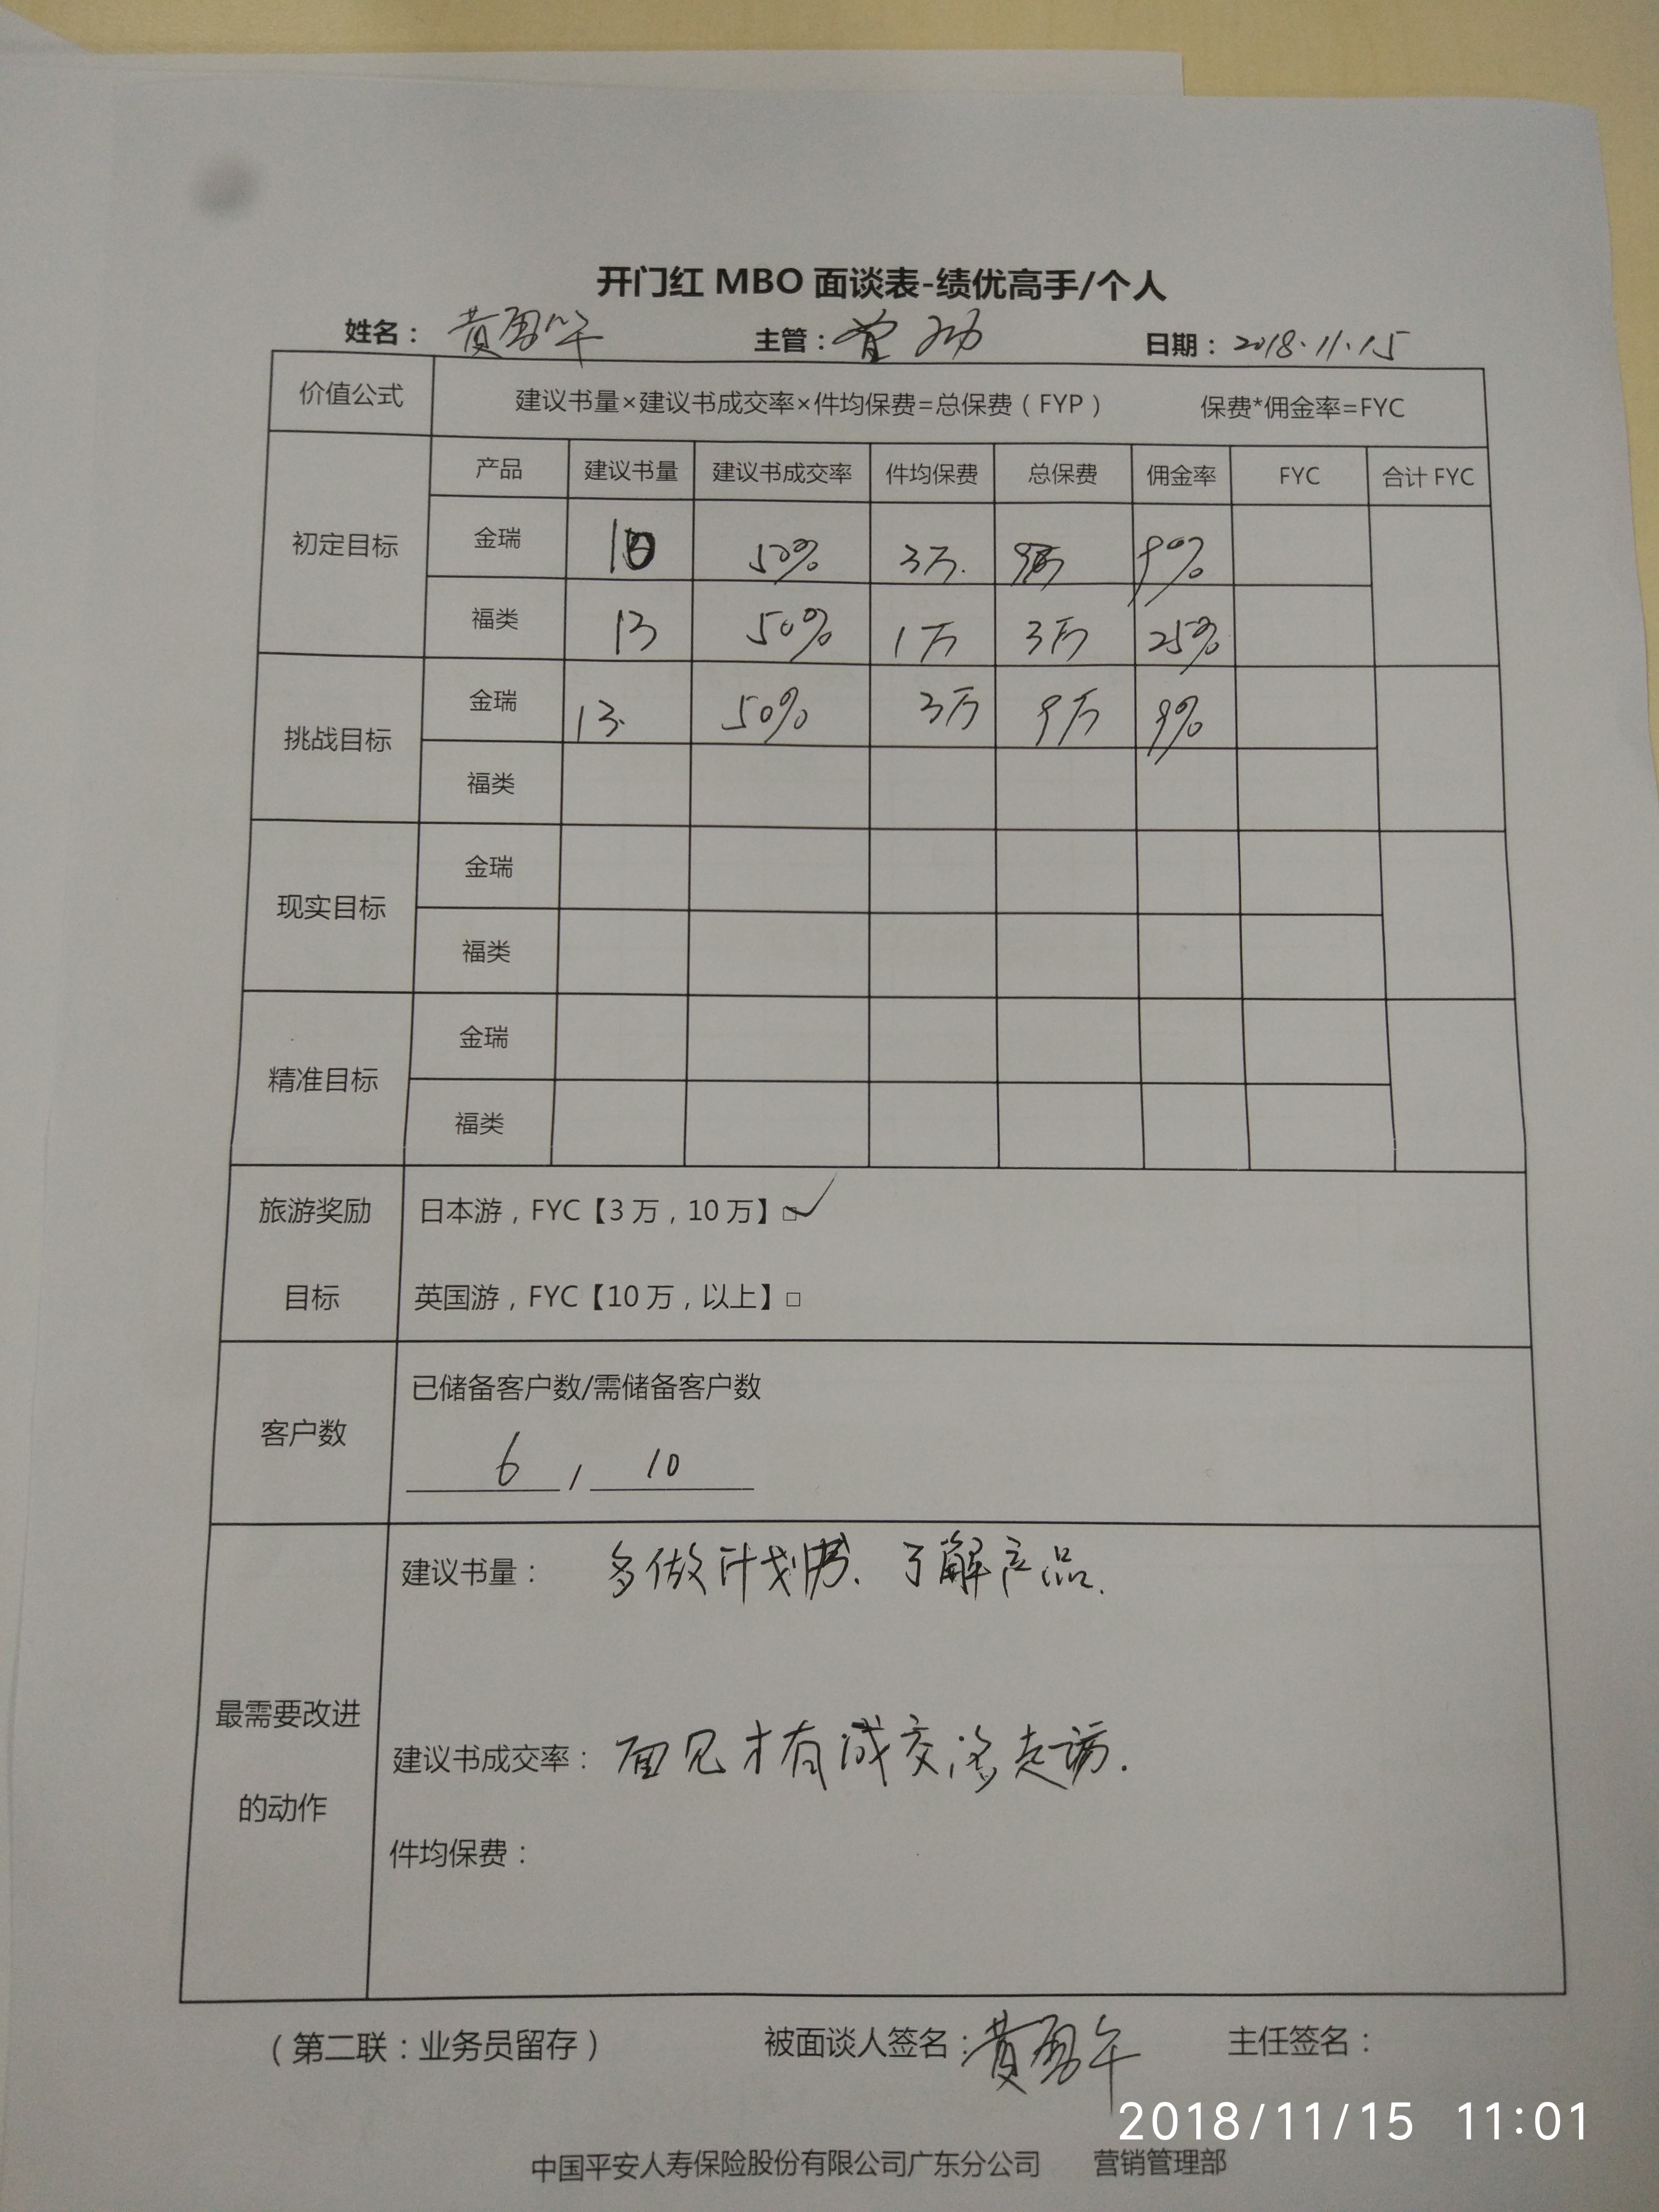 开门红 MBO 面谈表-绩优高手/个人
姓名： 主管：曾 日期：2018.11.15
价值公式 建议书量×建议书成交率×件均保费=总保费（FYP） 保费*佣金率=FYC
产品 建议书量 建议书成交率 件均保费 总保费 佣金率 FYC 合计 FYC
初定目标
金瑞 10 50% 3万. 9%
福类 13 50% 1万 3万 25%
挑战目标
金瑞 13. 50% 3万 9万 9%
福类
现实目标
金瑞
福类
精准目标
金瑞
福类
旅游奖励
目标
日本游，FYC【3万，10万】□✓
英国游，FYC【10万，以上】□
客户数
已储备客户数/需储备客户数
6 / 10
最需要改进
的动作
建议书量： 多做计划书、了解产品.
建议书成交率： 面见才有成交 走访.
件均保费：
（第二联：业务员留存） 被面谈人签名： 主任签名：
2018/11/15 11:01
中国平安人寿保险股份有限公司广东分公司 营销管理部